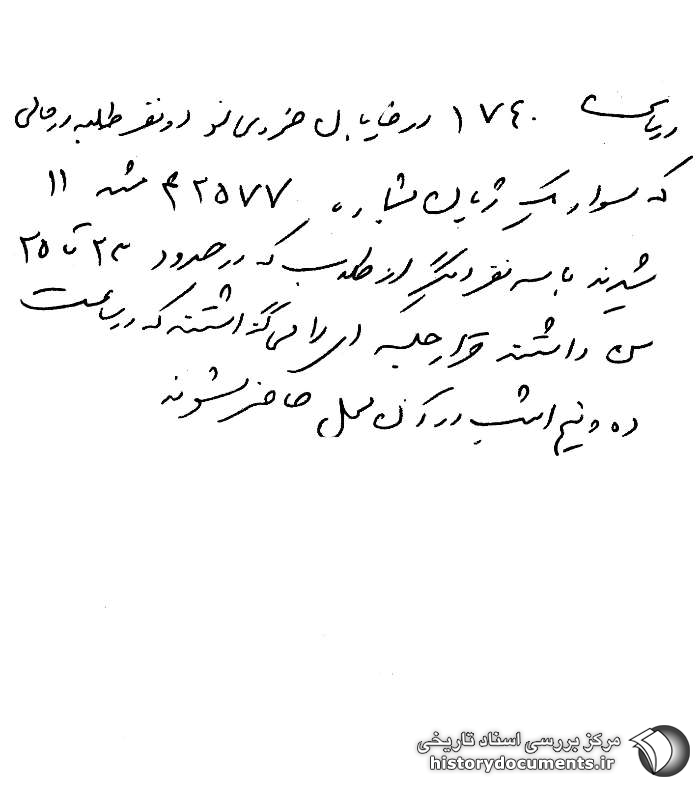 در ساعت ۱۷۴۰ در خیابان خسروی نو دو نفر طلبه در حالی
که سوار یک ژیان بشماره ۲۵۷۷۳ مشهد ۱۱
شدند با سه نفر دیگر از طلاب که در حدود ۲۳ تا ۲۵
سن داشتند قرار جلسه ای را می گذاشتند که در ساعت
ده و نیم امشب در آن محل حاضر شوند
مرکز بررسی اسناد تاریخی
historydocuments.ir